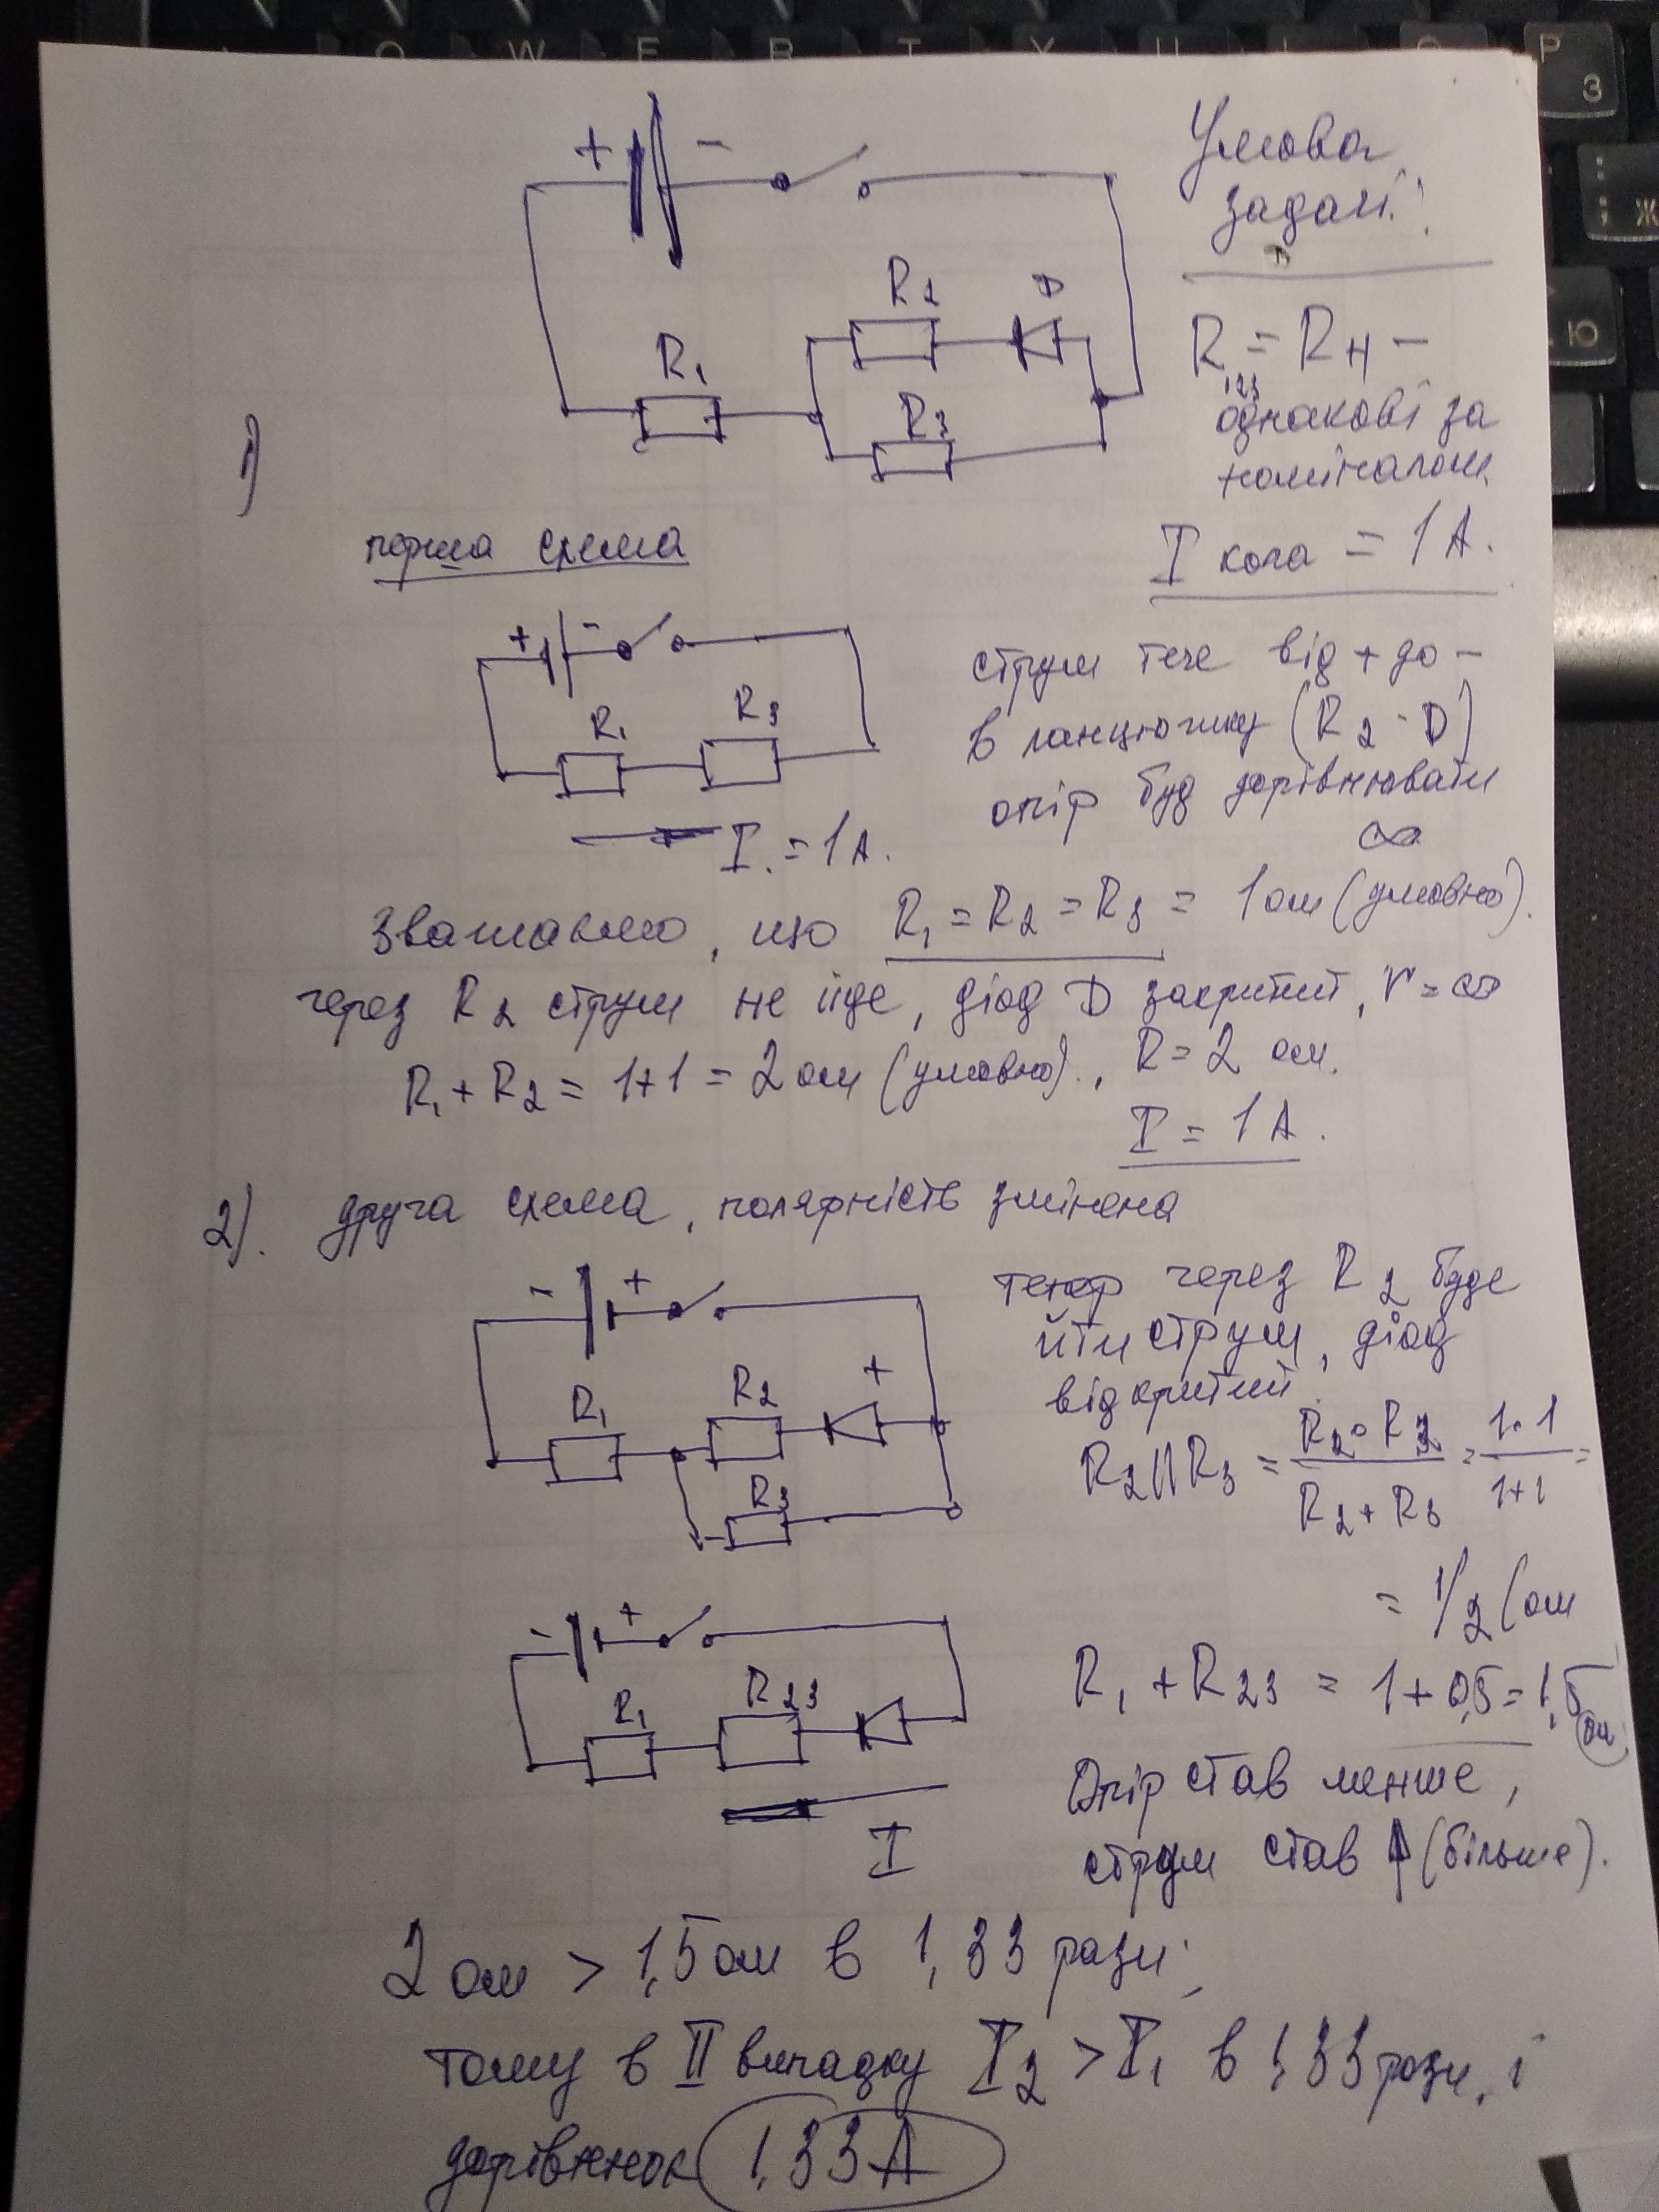 Умова
задачі:
+ -
R2
D
R1
R3
R123 = RН -
однакові за
номіналом.
I кола = 1А.
1)
перша схема
+ -
R1 R3
I = 1А.
струм тече від + до -
в ланцюжку (R2 - D)
опір буд дорівнювати
∞
Зважаємо, що R1 = R2 = R3 = 1 ом (умовно).
через R2 струм не йде, діод D закритий, r = ∞
R1 + R2 = 1+1 = 2 ом (умовно)., R = 2 ом.
I = 1А.
2). друга схема, полярність змінена
- +
R1 R2 +
R3
тепер через R2 буде
йти струм, діод
відкритий.
R2 || R3 = R2 · R3 / R2 + R3 = 1·1 / 1+1 =
= 1/2 (ом
- +
R1 R23
I
R1 + R23 = 1 + 0,5 = 1,5 ом.
Опір став менше,
струм став ↑ (більше).
2 ом > 1,5 ом в 1,33 рази;
тому в II випадку I2 > I1 в 1,33 рази, і
дорівнює 1,33А
O W E R T Y U
Р
З
Ж
Ю